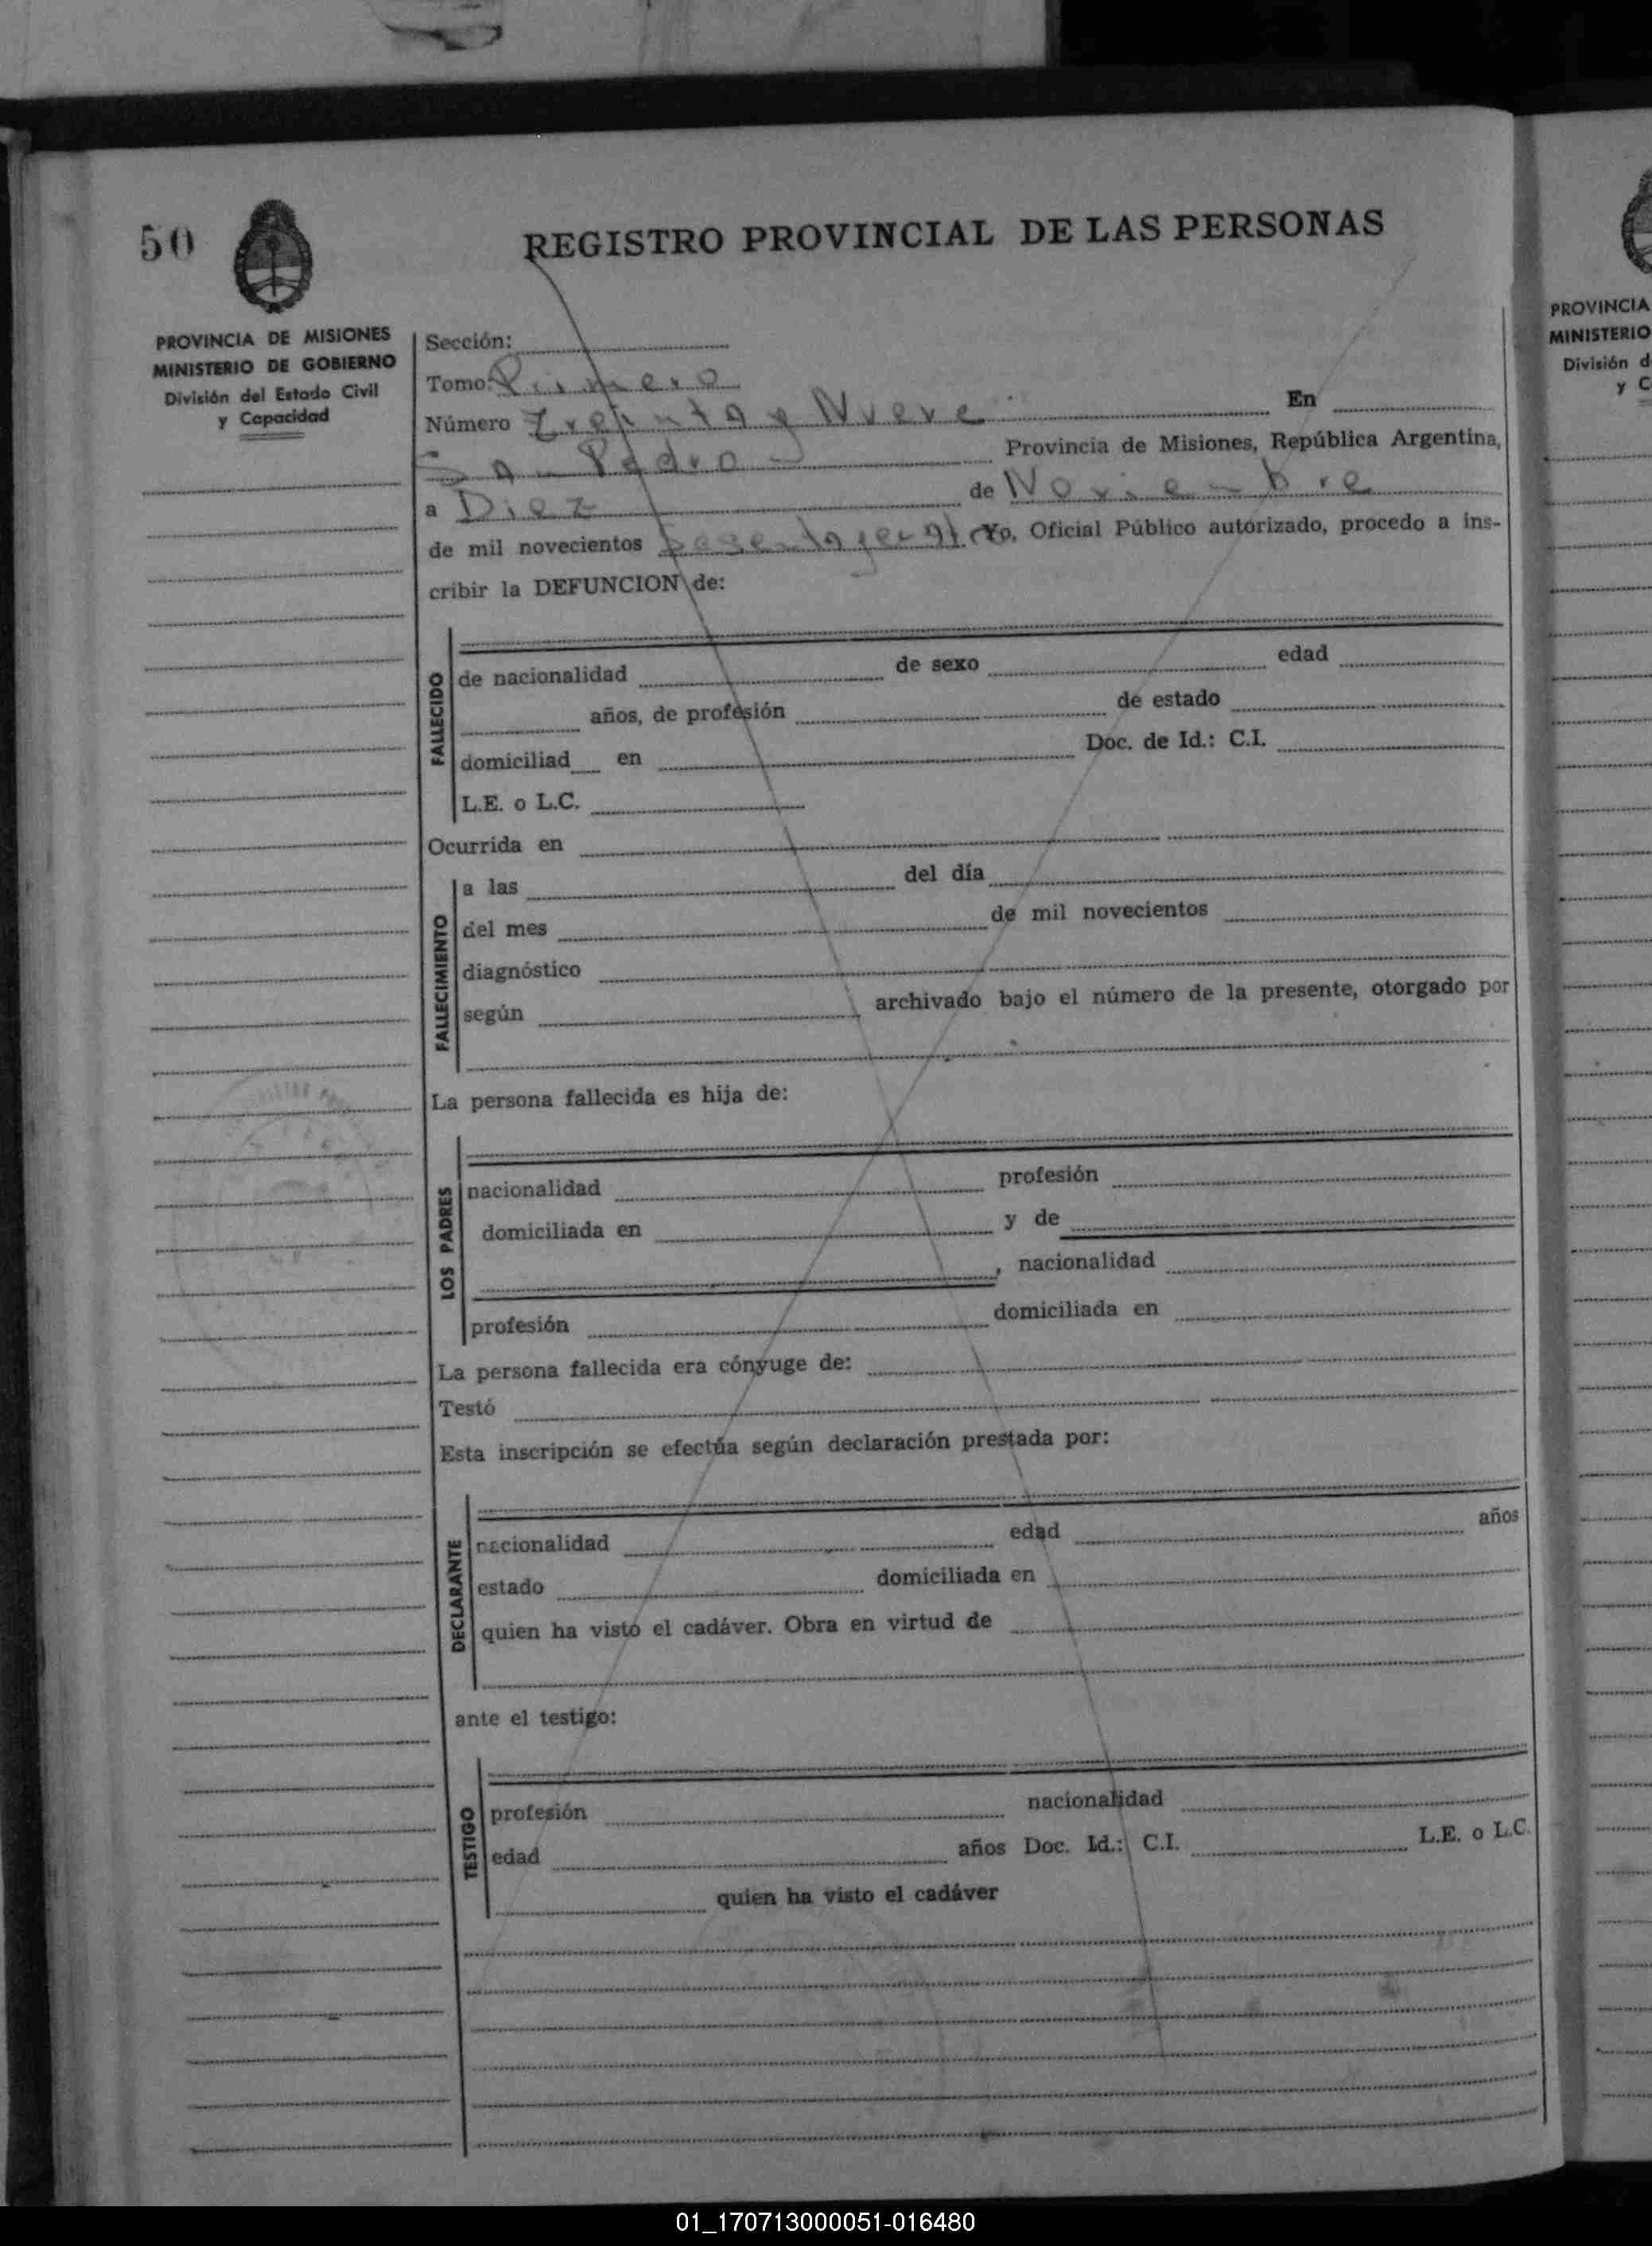 50
REGISTRO PROVINCIAL DE LAS PERSONAS
PROVINCIA DE MISIONES
MINISTERIO DE GOBIERNO
División del Estado Civil
y Capacidad
Sección:
Tomo: Primero
Número Treinta y Nueve En
San Pedro Provincia de Misiones, República Argentina,
a Diez de Noviembre
de mil novecientos Yo, Oficial Público autorizado, procedo a ins-
cribir la DEFUNCION de:
FALLECIDO
de nacionalidad de sexo edad
años, de profesión de estado
domiciliad en Doc. de Id.: C.I.
L.E. o L.C.
Ocurrida en
FALLECIMIENTO
a las del día
del mes de mil novecientos
diagnóstico
según archivado bajo el número de la presente, otorgado por
La persona fallecida es hija de:
LOS PADRES
nacionalidad profesión
domiciliada en y de
, nacionalidad
profesión domiciliada en
La persona fallecida era cónyuge de:
Testó
Esta inscripción se efectúa según declaración prestada por:
DECLARANTE
nacionalidad edad años
estado domiciliada en
quien ha visto el cadáver. Obra en virtud de
ante el testigo:
TESTIGO
profesión nacionalidad
edad años Doc. Id.: C.I. L.E. o L.C.
quien ha visto el cadáver
PROVINCIA
MINISTERIO
División d
y C
01_170713000051-016480